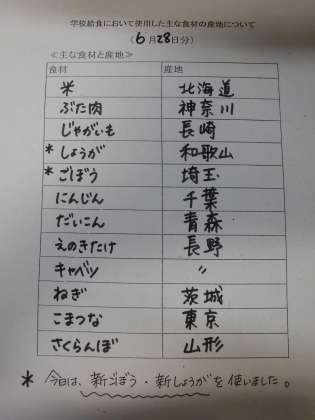 学校給食において使用した主な食材の産地について
(6月28日分)
≪主な食材と産地≫
食材 産地
米 北海道
ぶた肉 神奈川
じゃがいも 長崎
* しょうが 和歌山
* ごぼう 埼玉
にんじん 千葉
だいこん 青森
えのきたけ 長野
キャベツ 〃
ねぎ 茨城
こまつな 東京
さくらんぼ 山形
* 今日は、新ごぼう・新しょうがを使いました。